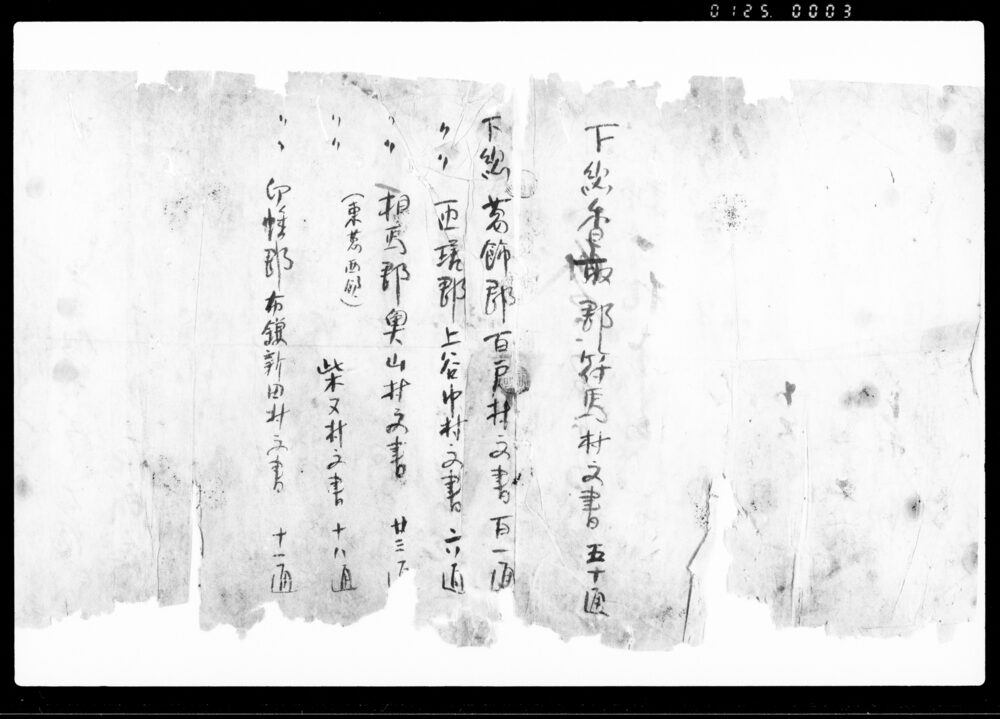 0125. 0003
下総香取郡符馬村文書 五十通
下総葛飾郡百戸村文書 百一通
〃〃 匝瑳郡上谷中村文書 六通
〃〃 相馬郡奥山村文書 廿三通
(東葛西領)
〃〃 柴又村文書 十八通
〃〃 印幡郡布鎌新田村文書 十一通